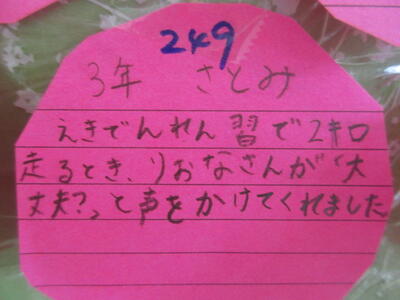 249
3年 さとみ
えきでんれん習で2キロ
走るとき、りおなさんが「大
丈夫?」と声をかけてくれました